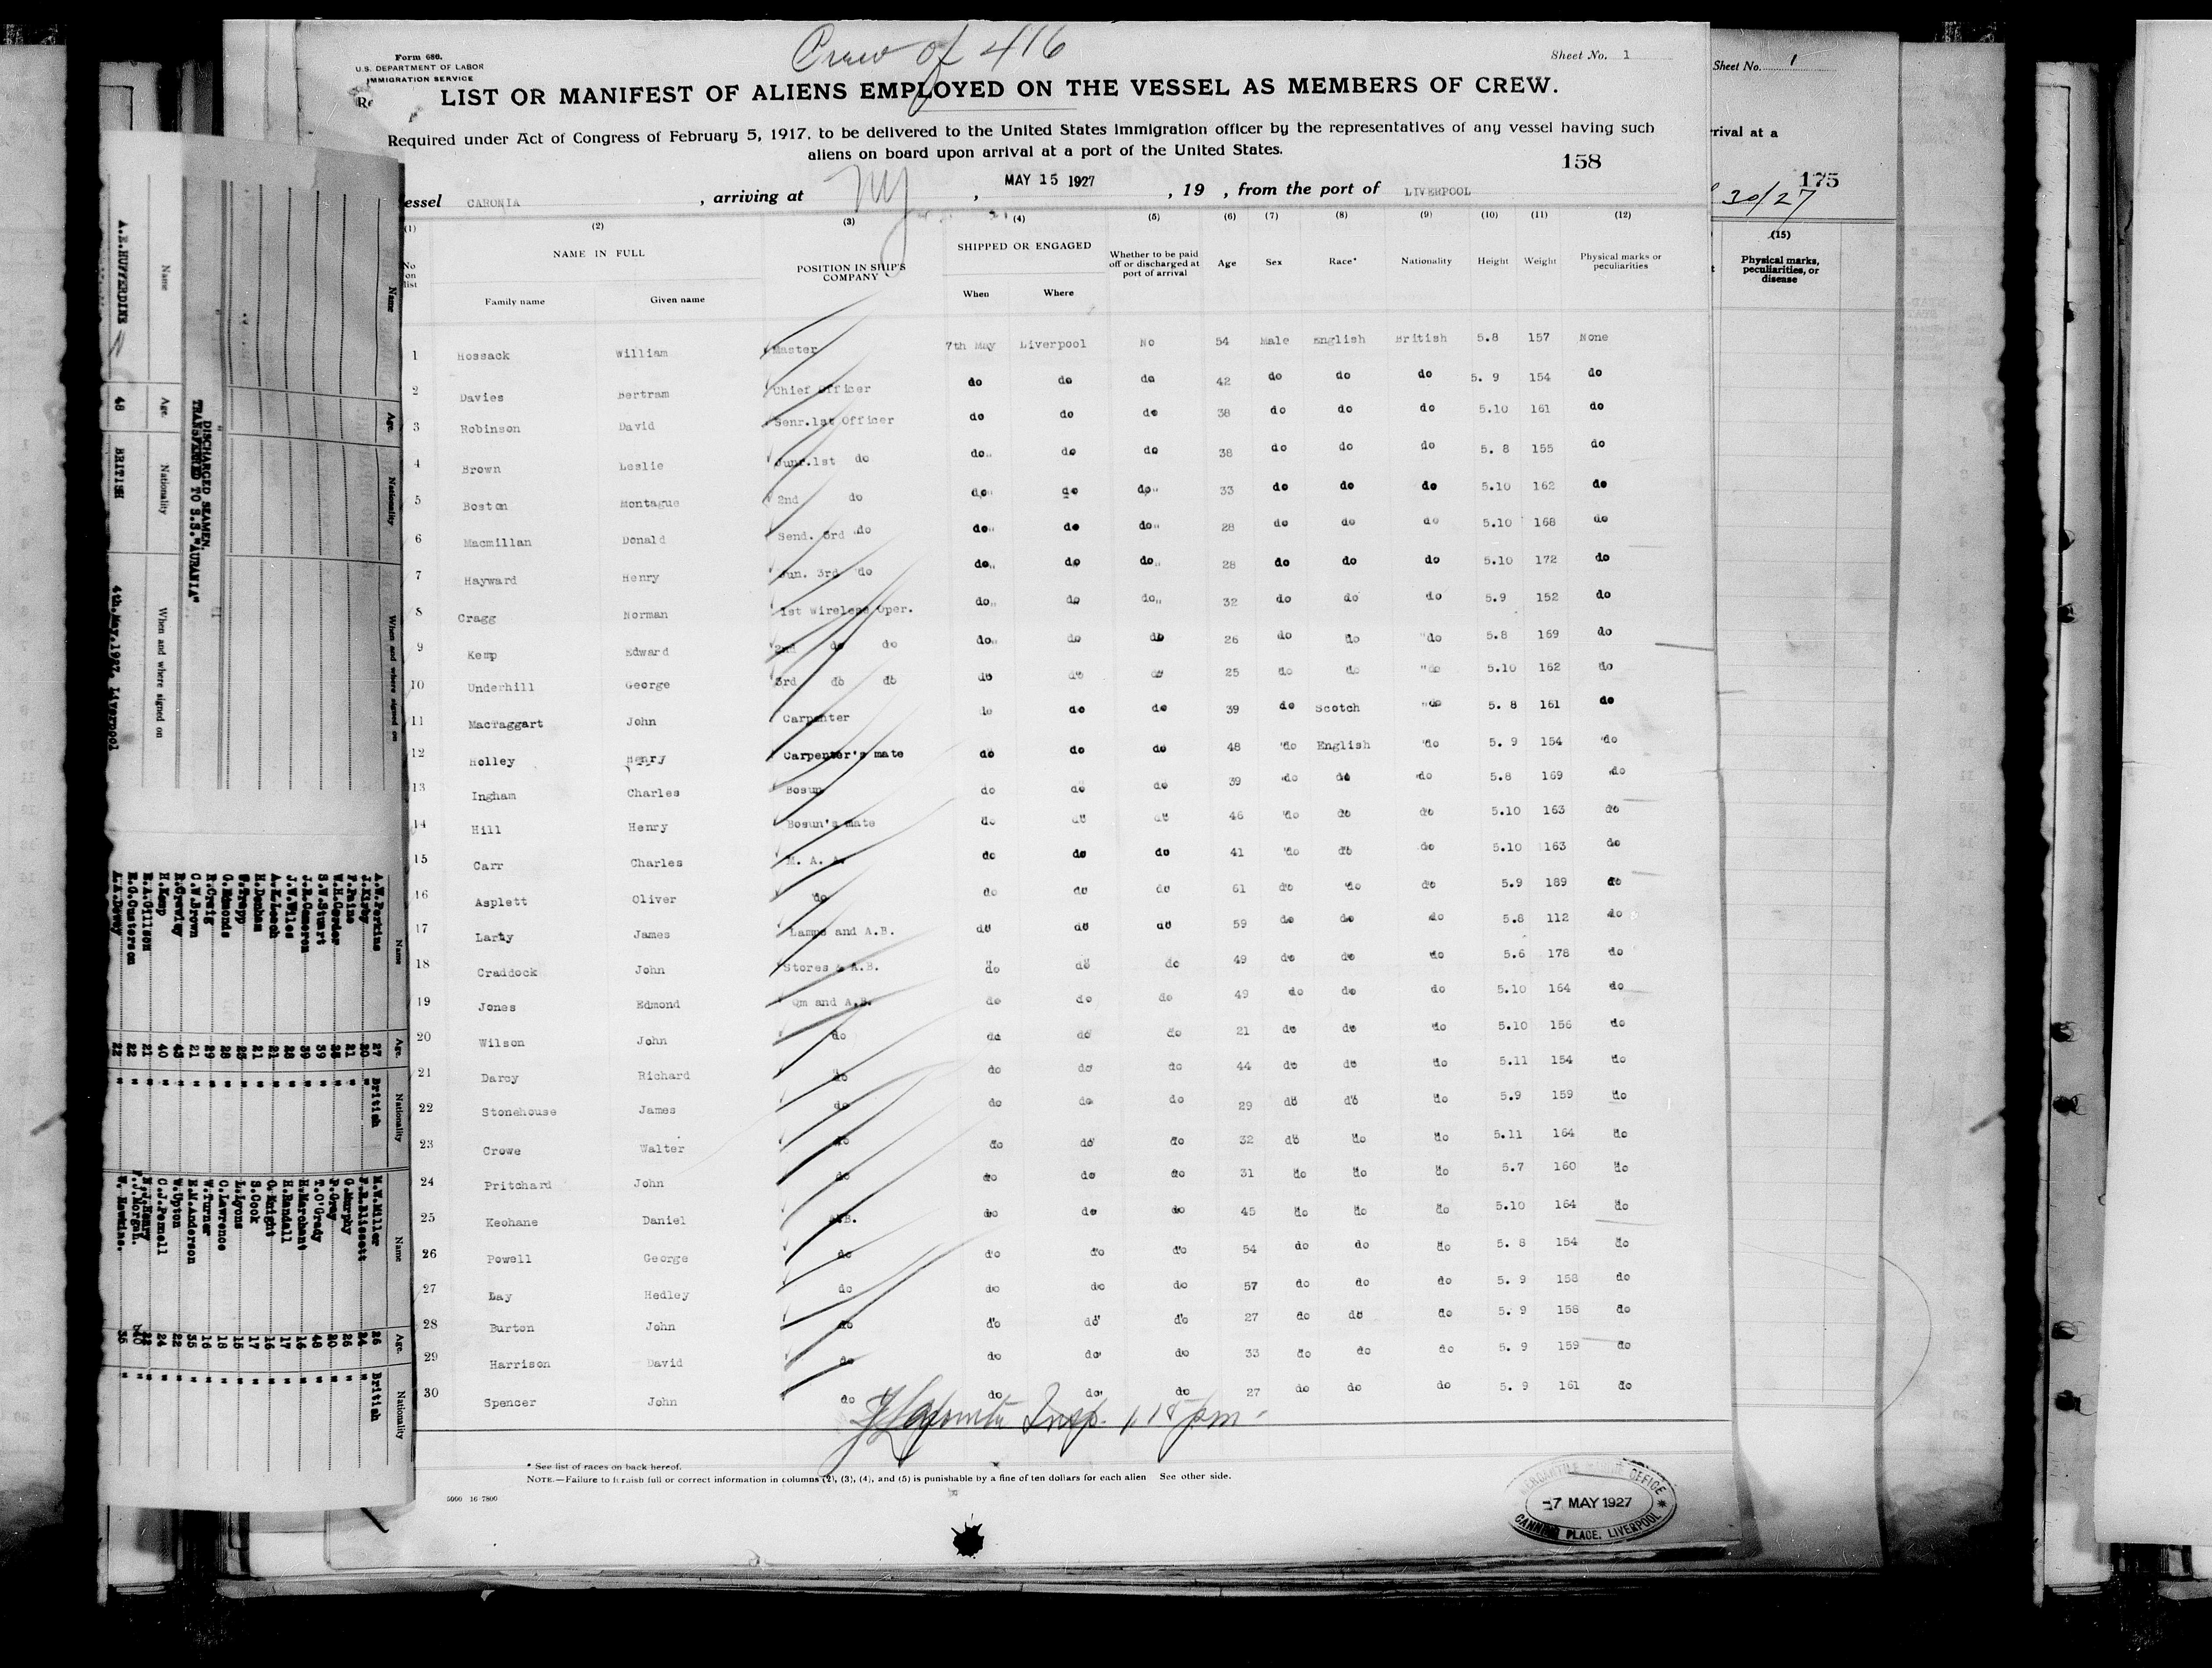 Crew of 416
Form 680.
U.S. DEPARTMENT OF LABOR
IMMIGRATION SERVICE
Sheet No. 1
LIST OR MANIFEST OF ALIENS EMPLOYED ON THE VESSEL AS MEMBERS OF CREW.
Required under Act of Congress of February 5, 1917, to be delivered to the United States immigration officer by the representatives of any vessel having such
aliens on board upon arrival at a port of the United States.
158
essel CARONIA , arriving at NY , MAY 15 1927 , 19 , from the port of LIVERPOOL
(1) (2) (3) (4) (5) (6) (7) (8) (9) (10) (11) (12)
No on list NAME IN FULL Family name Given name POSITION IN SHIP'S COMPANY SHIPPED OR ENGAGED When Where Whether to be paid off or discharged at port of arrival Age Sex Race* Nationality Height Weight Physical marks or peculiarities
1 Hossack William Master 7th May Liverpool No 54 Male English British 5.8 157 None
2 Davies Bertram Chief Officer do do do 42 do do do 5. 9 154 do
3 Robinson David Senr.1st Officer do do do 38 do do do 5.10 161 do
4 Brown Leslie Junr.1st do do do do 38 do do do 5. 8 155 do
5 Boston Montague 2nd do do do do 33 do do do 5.10 162 do
6 Macmillan Donald Send. 3rd do do do do 28 do do do 5.10 168 do
7 Hayward Henry Jun. 3rd do do do do 28 do do do 5.10 172 do
8 Cragg Norman 1st Wireless Oper. do do do 32 do do do 5.9 152 do
9 Kemp Edward 2nd do do do do do 26 do do do 5.8 169 do
10 Underhill George 3rd do do do do do 25 do do do 5.10 162 do
11 MacTaggart John Carpenter do do do 39 do Scotch do 5. 8 161 do
12 Holley Henry Carpenter's mate do do do 48 do English do 5. 9 154 do
13 Ingham Charles Bosun do do do 39 do do do 5.8 169 do
14 Hill Henry Bosun's mate do do do 46 do do do 5.10 163 do
15 Carr Charles M. A. A. do do do 41 do do do 5.10 163 do
16 Asplett Oliver do do do do 61 do do do 5.9 189 do
17 Larty James Lamps and A.B. do do do 59 do do do 5.8 112 do
18 Craddock John Stores & A.B. do do do 49 do do do 5.6 178 do
19 Jones Edmond Qm and A.B. do do do 49 do do do 5.10 164 do
20 Wilson John do do do do 21 do do do 5.10 156 do
21 Darcy Richard do do do do 44 do do do 5.11 154 do
22 Stonehouse James do do do do 29 do do do 5.9 159 do
23 Crowe Walter do do do do 32 do do do 5.11 164 do
24 Pritchard John do do do do 31 do do do 5.7 160 do
25 Keohane Daniel A.B. do do do 45 do do do 5.10 164 do
26 Powell George do do do do 54 do do do 5. 8 154 do
27 Day Hedley do do do do 57 do do do 5. 9 158 do
28 Burton John do do do do 27 do do do 5. 9 158 do
29 Harrison David do do do do 33 do do do 5. 9 159 do
30 Spencer John do do do do 27 do do do 5. 9 161 do
Insp. 1.15 pm
* See list of races on back hereof.
NOTE.—Failure to furnish full or correct information in columns (2), (3), (4), and (5) is punishable by a fine of ten dollars for each alien See other side.
5000 16-7800
MERCANTILE MARINE OFFICE
-7 MAY 1927
CANNING PLACE, LIVERPOOL
Sheet No. 1
rrival at a
175
30/27
(15)
Physical marks, peculiarities, or disease
Name Age. Nationality When and where signed on
DISCHARGED SEAMEN.
TRANSFERRED TO S.S."AURANIA"
Name Age. Nationality When and where signed on
A.E.HUFFERDINE 48 BRITISH 4th.May.1927. Liverpool
Name Age. Nationality Name Age. Nationality
A.W.Perkins 27 British M.W.Miller 26 British
J.Kirby 20 " F.R.Blissett 24 "
F.Paine 21 " G.Murphy 26 "
W.H.Corder 35 " P.Gray 20 "
S.W.Stuart 39 " T.O'Grady 48 "
J.R.Cameron 39 " H.Marchant 16 "
J.W.Wiles 28 " H.Randall 17 "
A.E.Leach 21 " G.Knight 16 "
H.Denham 21 " S.Cook 17 "
S.Trapp 25 " L.Lyons 15 "
G.Edmonds 28 " C.Lawrence 18 "
R.Craig 29 " W.Turner 16 "
C.W.Brown 21 " E.M.Anderson 35 "
R.Crawley 43 " W.Upton 22 "
H.Kemp 40 " C.J.Pennell 24 "
R.A.Gillson 21 " N.J.Henry 22 "
R.G.Custerson 22 " F.J.Morgan. 40 "
A.A.Dewey 22 " W. Hawkins. 35 "